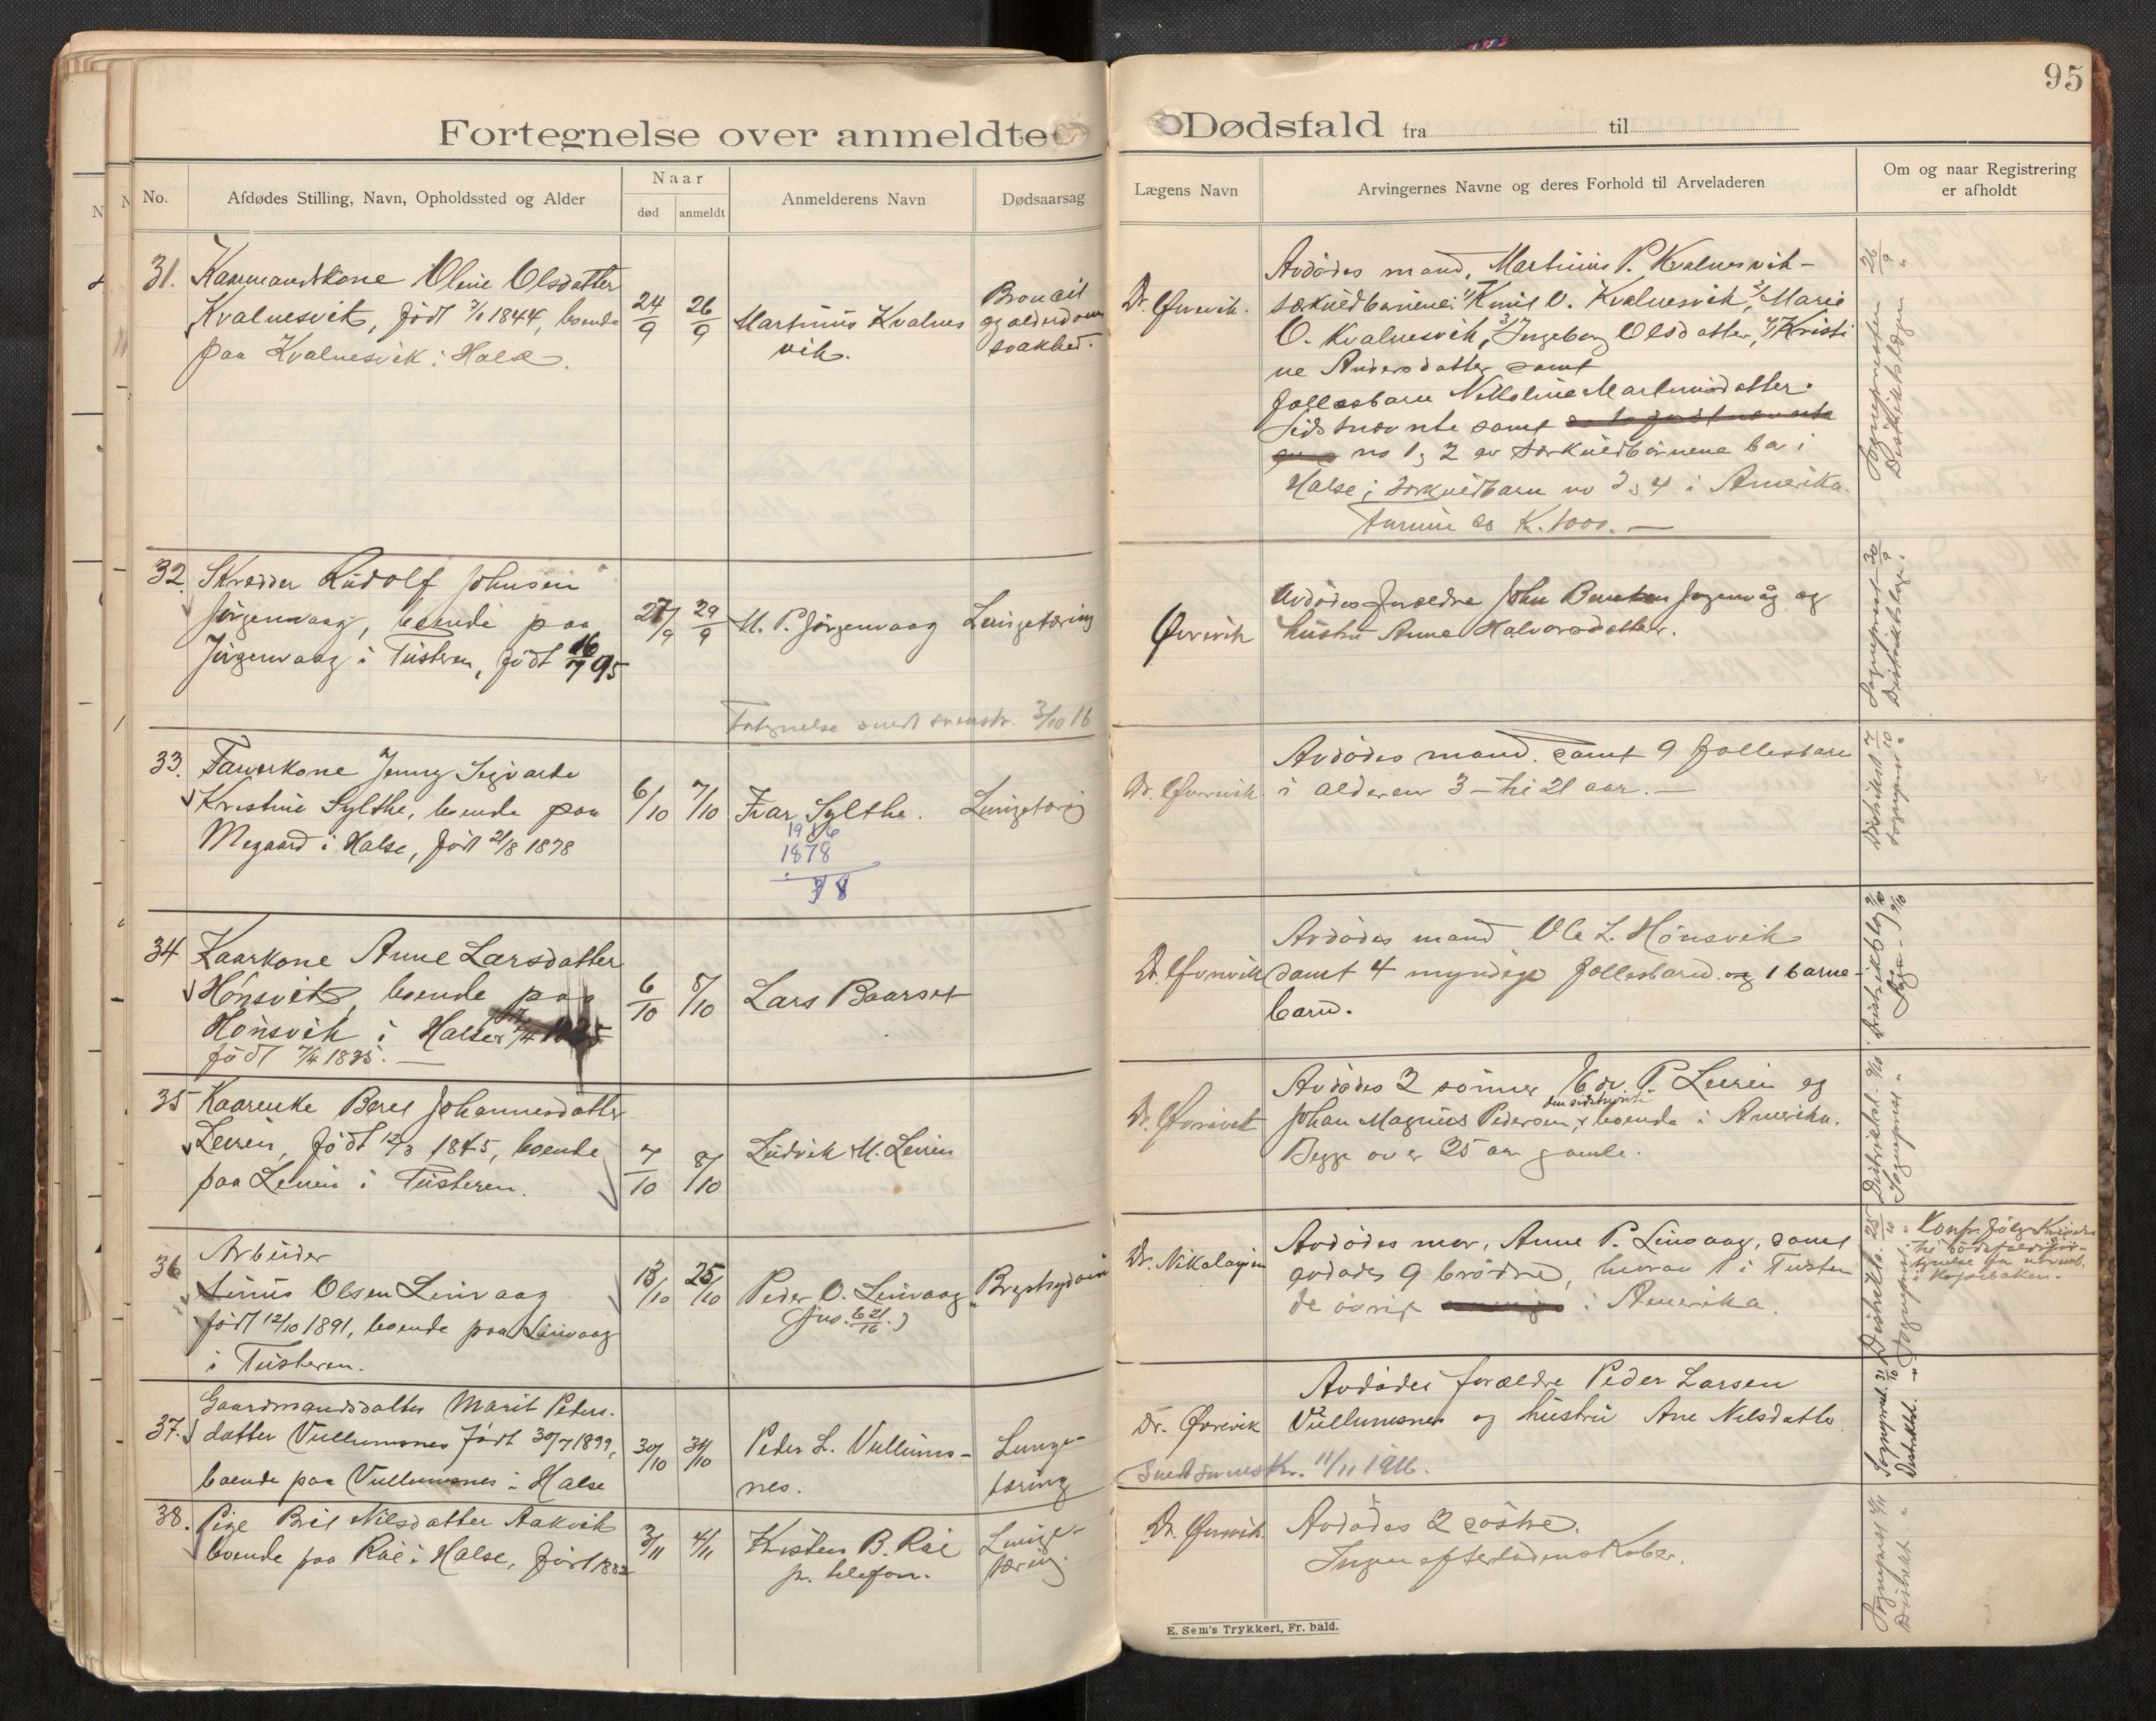 95
Fortegnelse over anmeldte Dødsfald fra til
No.
Afdødes Stilling, Navn, Opholdssted og Alder
Naar
død
anmeldt
Anmelderens Navn
Dødsaarsag
Lægens Navn
Arvingernes Navne og deres Forhold til Arveladeren
Om og naar Registrering
er afholdt
31. Kaarmandskone Oline Olsdatter
Kvalnesvik, født 1844, boende
paa Kvalnesvik i Halse.
24/9
26/9
Martinus Kvalnes
vik.
og alderdoms
svakhed.
Dr. Øvrevik.
Avdødes mand, Martinus P. Kvalnesvik -
særkuldbarnene: 1) Knut O. Kvalnesvik, 2) Marie
O. Kvalnesvik, 3) Ingeborg Olsdatter, 4) Kristi
ne Andersdatter samt
fællesbarn Martinusdatter.
Sidstnævnte samt
no 1 og 2 av særkuldbørnene bor i
Halse; særkuldbarn no 3 og 4 i Amerika.
Formue ca K. 1000. —
Sognepresten 26/9
Distriktslægen "
32. Skrædder Rudolf Johnsen
Jørgenvaag, boende paa
Jørgenvaag i Tusteren, født 16/7 95
27/9
29/9
M. P. Jørgenvaag
Lungetæring
3/10 16
Øvrevik
Avdødes forældre John Jørgenvåg og
hustru Anne Halvorsdatter.
Sogneprest 30/9
Distriktslæge "
33. Farverkone Jenny Sigvarda
Kristine Sylthe, boende paa
Megaard i Halse, født 21/8 1878
6/10
7/10
Ivar Sylthe.
1916
1878
38
Lungetæring
Dr. Øvrevik
Avdødes mand samt 9 fællesbarn
i alderen 3 - til 21 aar. —
Distriktsl. 7/10
Sogneprest "
34 Kaarkone Anne Larsdatter
Hønsvik, boende paa
Hønsvik i Halse
født 7/4 1835. —
6/10
8/10
Lars Baarset
Dr. Øvrevik
Avdødes mand Ole L. Hønsvik
samt 4 myndige fællesbarn og 1 barne-
barn.
Distriktslæg 9/10
Sogn. 9/10
35 Kaarenke Beret Johannesdatter
Leirin, født 12/3 1845, boende
paa Leirin i Tusteren.
7/10
8/10
Ludvik M. Leirin
Dr. Øvrevik
Avdødes 2 sønner P. Leirin og
den sidstnævnte
Johan Magnus Pedersen, boende i Amerika.
Begge over 25 aar gamle.
Distriktsl.
Sogneprest "
36 Arbeider
Sinus Olsen Linvaag
født 12/10 1891, boende paa Linvaag
i Tusteren.
13/10
25/10
Peder O. Linvaag
(jno. 621/16)
Brystsygdom
Dr. Nikolaysen
Avdødes mor, Anne P. Linvaag, samt
avdødes 9 brødre, hvorav 1 i Tusteren
de øvrige i Amerika.
Distriktsl. 25/10
Sogneprest "
Konf. følg Skrivelse
til dødsfaldsfor-
tegnelse
i Kopiboken.
37. Gaardmandsdatter Marit Peders-
datter Vullumsnes født 30/7 1899,
boende paa Vullumsnes i Halse
30/10
31/10
Peder L. Vullums-
nes.
Lunge-
tæring
Dr. Øvrevik
Avdødes forældre Peder Larsen
Vullumsnes og hustru Ane Nilsdatter
11/11 1916.
Sogneprest. 31/10
Distriktsl. "
38. Pige Brit Nilsdatter Aakvik
boende paa Røe i Halse, født 1882
3/11
4/11
Kristen B. Røe
pr. telefon.
Lunge-
tæring.
Dr. Øvrevik
Avdødes 2 søstre.
Ingen efterladenskaber.
Sogneprest 4/11
Distriktsl. "
E. Sem's Trykkeri, Fr. hald.